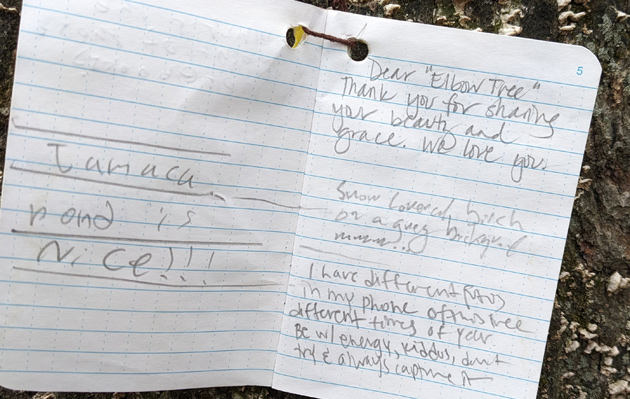 Jamaca
pond is
Nice!!!
5
Dear "Elbow Tree"
Thank you for sharing
your beauty and
grace. We love you.
Snow covered birch
on a grey
mmm...
I have different
in my phone of this tree
different times of year
Be w/ energy, kiddos, don't
try & always capture it